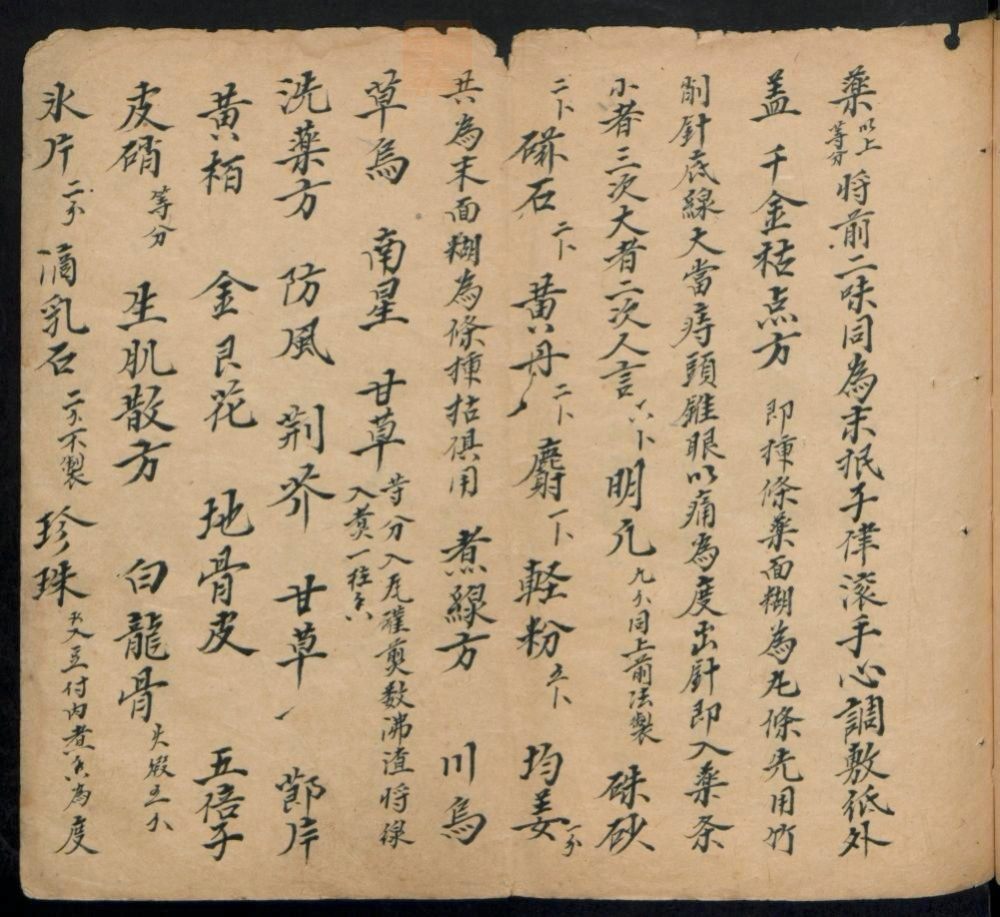 藥以上等分将前二味同為末抿子律滚手心調敷紙外
盖 千金枯点方 即揷條藥面糊為丸條先用竹
削針底線大當痔頭錐眼以痛為度出針即入藥条
小者三次大者二次人言六卜明凡九分同上前法製 硃砂
二卜 磁石二卜 黄丹二卜 麝一卜 軽粉五卜 均姜一分
共為末面糊為條揷枯俱用 煮線方 川烏
草烏 南星 甘草 等分入瓦礶煎数沸渣将線入煮一柱香
洗藥方 防風 荆芥 甘草 節片
黄栢 金艮花 地骨皮 五倍子
皮硝等分 生肌散方 白龍骨火煅五分
氷片二分 滴乳石二分不製 珍珠五分入豆付内煮香為度